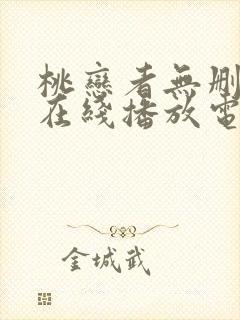 桃戀者無刪
在綫播放電
金城武